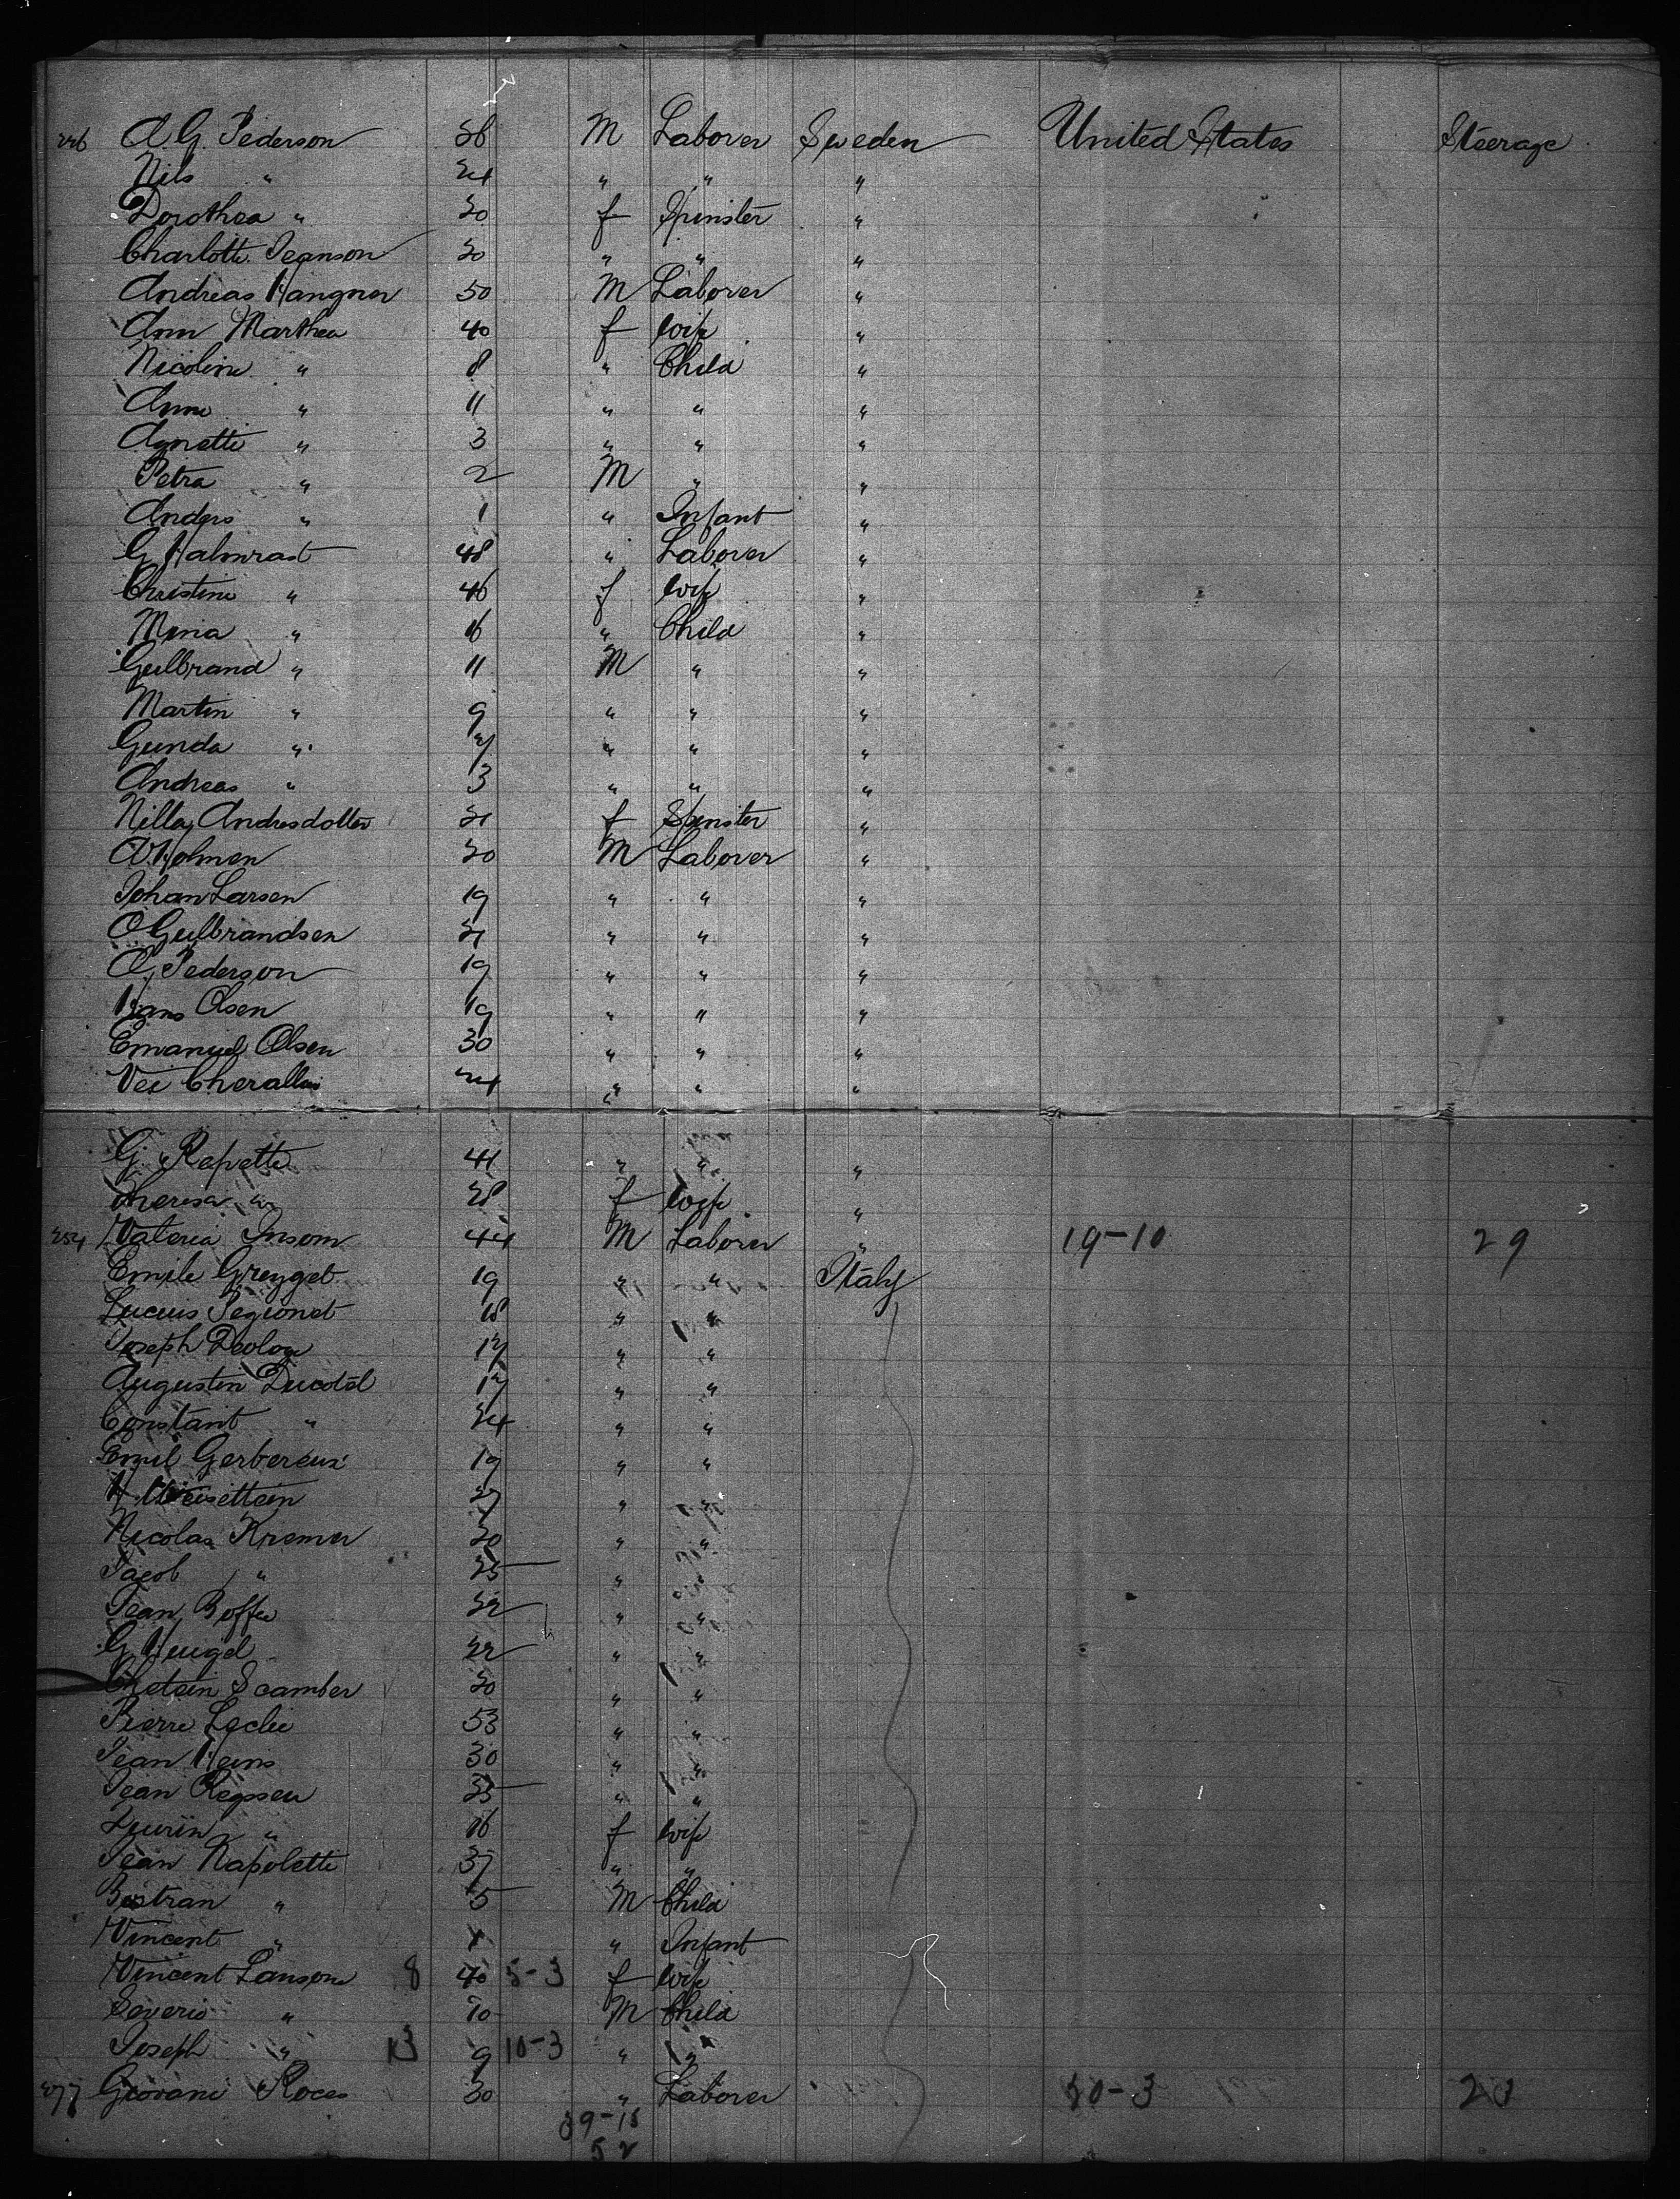 226 A. G. Pederson 26 M Laborer Sweden United States Steerage
Nils " 24 " " "
Dorothea " 20 f Spinster "
Charlotte Jeanson 20 " " "
Andreas Hangner 50 M Laborer "
Ann Marthea 40 f Wife "
Nicoline " 8 " Child "
Anne " 11 " " "
Agnette " 3 " " "
Petra " 2 M " "
Anders " 1 " Infant "
G Halmrast 48 " Laborer "
Christine " 46 f Wife "
Mina " 16 " Child "
Gulbrand " 11 M " "
Martin " 9 " " "
Gunda " 7 " " "
Andreas " 3 " " "
Nilla Andresdotter 21 f Spinster "
A Holmen 20 M Laborer "
Johan Larsen 19 " " "
O Gulbrandsen 21 " " "
A, Pederson 19 " " "
Hans Olsen 19 " " "
Emanuel Olsen 30 " " "
Vei 24 " " "
G. Repette 41 " " "
Theresa " 28 f Wife "
254 Valeria Insom 44 M Laborer " 19-10 29
Emile 19 " " Italy
Lucuis 18 " "
Joseph 17 " "
Augustin Ducotel 17 " "
Constant " 24 " "
Emil Gerbereux 19 " "
27 " "
Nicolas Kremer 20 " "
Jacob " 25 " "
Jean Boffu 22 " "
G Hugel 22 " "
Scamber 20 " "
Pierre Leclie 53 " "
Jean Heins 30 " "
Jean 25 " "
" 16 f Wife
Jean Napolette 37 " "
Bestran " 5 M Child
Vincent " 1 " Infant
Vincent Lansone 8 40 5-3 f Wife
Severio " 10 M Child
Joseph " 13 9 10-3 " "
277 Giovani Roces 30 " Laborer 20-3 23
39-15
52